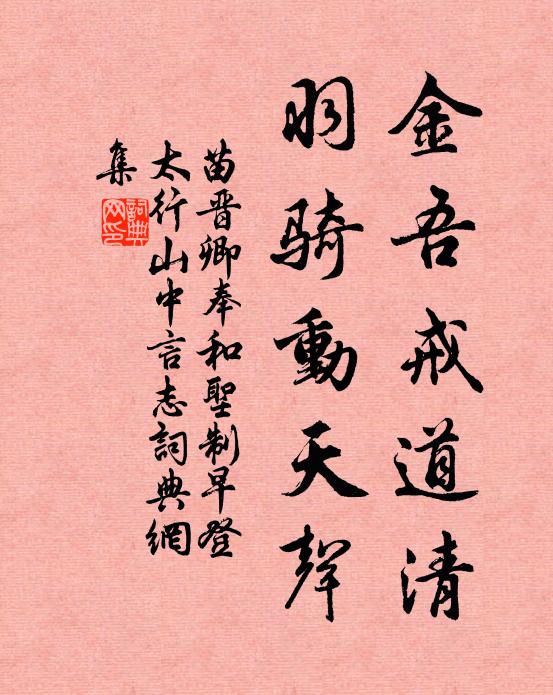 金吾戒道清
羽騎動天聲
苗晉卿奉和聖制早登
太行山中言志詞典網
集
詞典網印